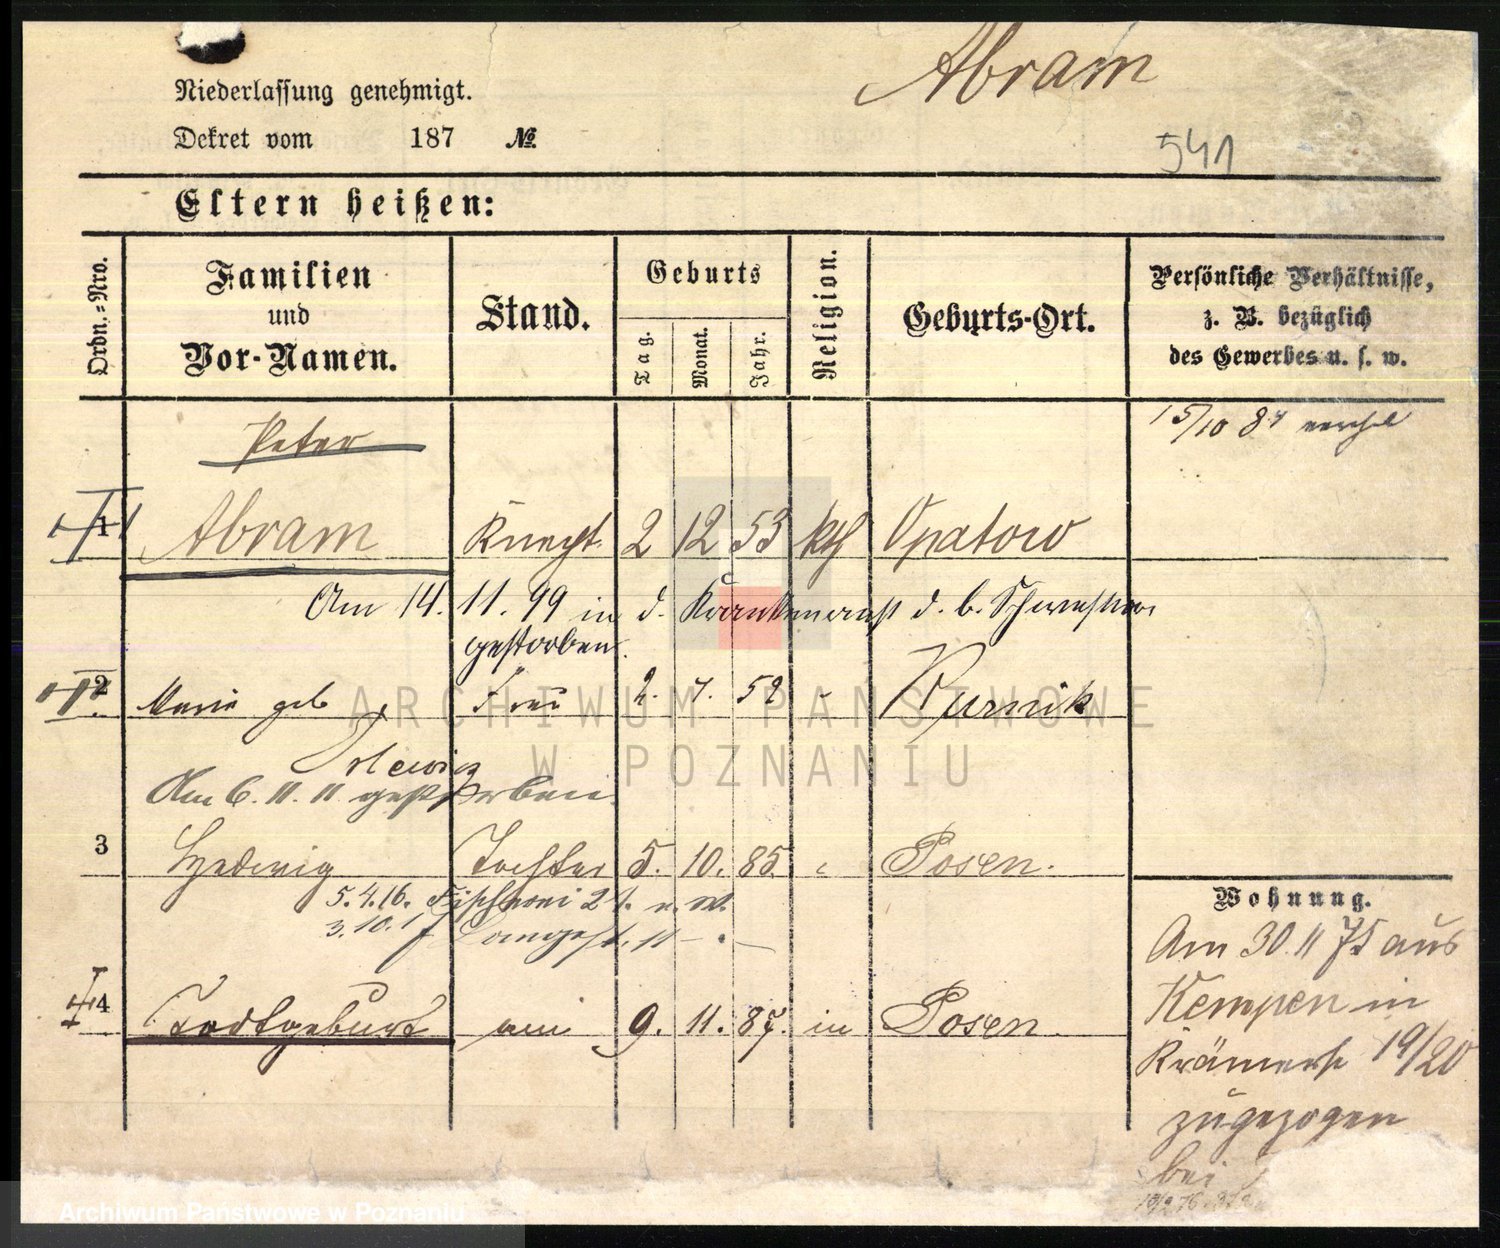 Abram
Niederlassung genehmigt.
Dekret vom 187 №
541
Eltern heißen:
Ordn.=Nro.
Familien
und
Vor-Namen.
Stand.
Geburts
Tag.
Monat.
Jahr.
Religion.
Geburts-Ort.
Persönliche Verhältnisse,
z. B. bezüglich
des Gewerbes u. s. w.
15/10 84
Peter
1 Abram Knecht 2 12 53 kth Opatow
Am 14. 11. 99 in d. Krankenanst d. b. Schwestern
gestorben.
2 Marie geb Frau 2. 7. 52 " Kurnik
Am 6. 11. 11 gestorben.
3 Hedwig Tochter 5. 10. 85 " Posen.
5.4.16. Fischerei 21.
3.10.17 Langest. 11
4 Todtgeburt am 9. 11. 87. in Posen.
Wohnung.
Am 30 11 75 aus
Kempen in
Krämerst 19/20
zugezogen
bei
ARCHIWUM PAŃSTWOWE
W POZNANIU
Archiwum Państwowe w Poznaniu